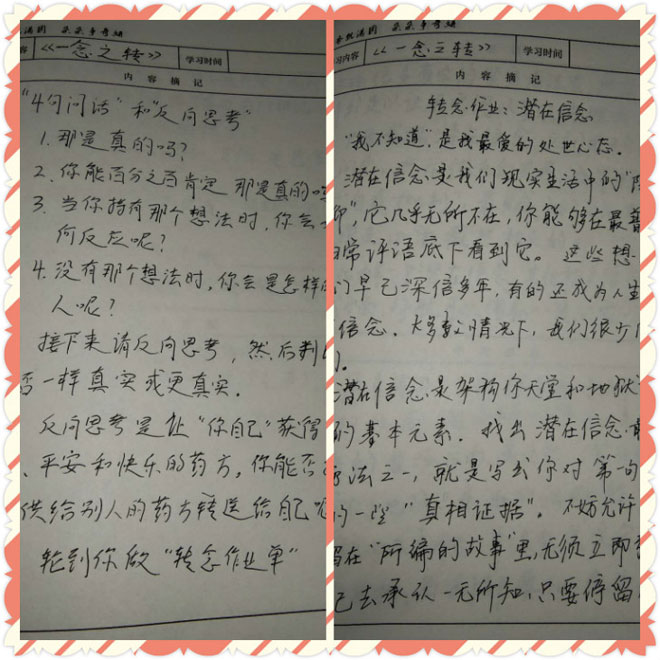 《一念之转》
学习时间
内 容 摘 记
"4句问话"和"反向思考"
1. 那是真的吗?
2. 你能百分之百肯定那是真的吗
3. 当你持有那个想法时,你会
何反应呢?
4. 没有那个想法时,你会是怎样的
人呢?
接下来请反向思考,然后判
否一样真实或更真实.
反向思考是让"你自己"获得
、平安和快乐的药方,你能否
供给别人的药方转送给自己
轮到你做"转念作业单"
习内容
《一念之转》
学习时间
内 容 摘 记
转念作业:潜在信念
"我不知道",是我最爱的处世心态.
潜在信念是我们现实生活中的"
",它几乎无所不在,你能够在最
常评语底下看到它。这些想
们早已深信多年,有的还成为人生
信念. 大多数情况下,我们很少
潜在信念是架构你天堂和地狱
的基本元素. 找出潜在信念
方法之一,就是写出你对"第一句
的一些"真相证据". 不妨允许
留在"所编的故事"里,无须立即
己去承认一无所知,只要停留